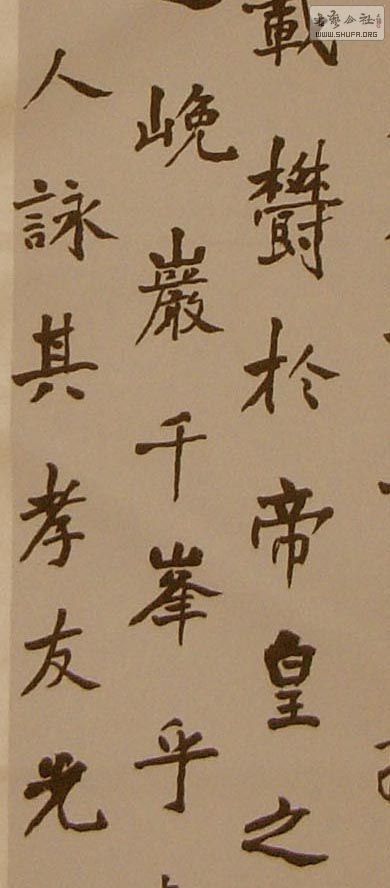 載欝於帝皇之
晚巖千峯乎
人詠其孝友光
書藝公社
WWW.SHUFA.ORG